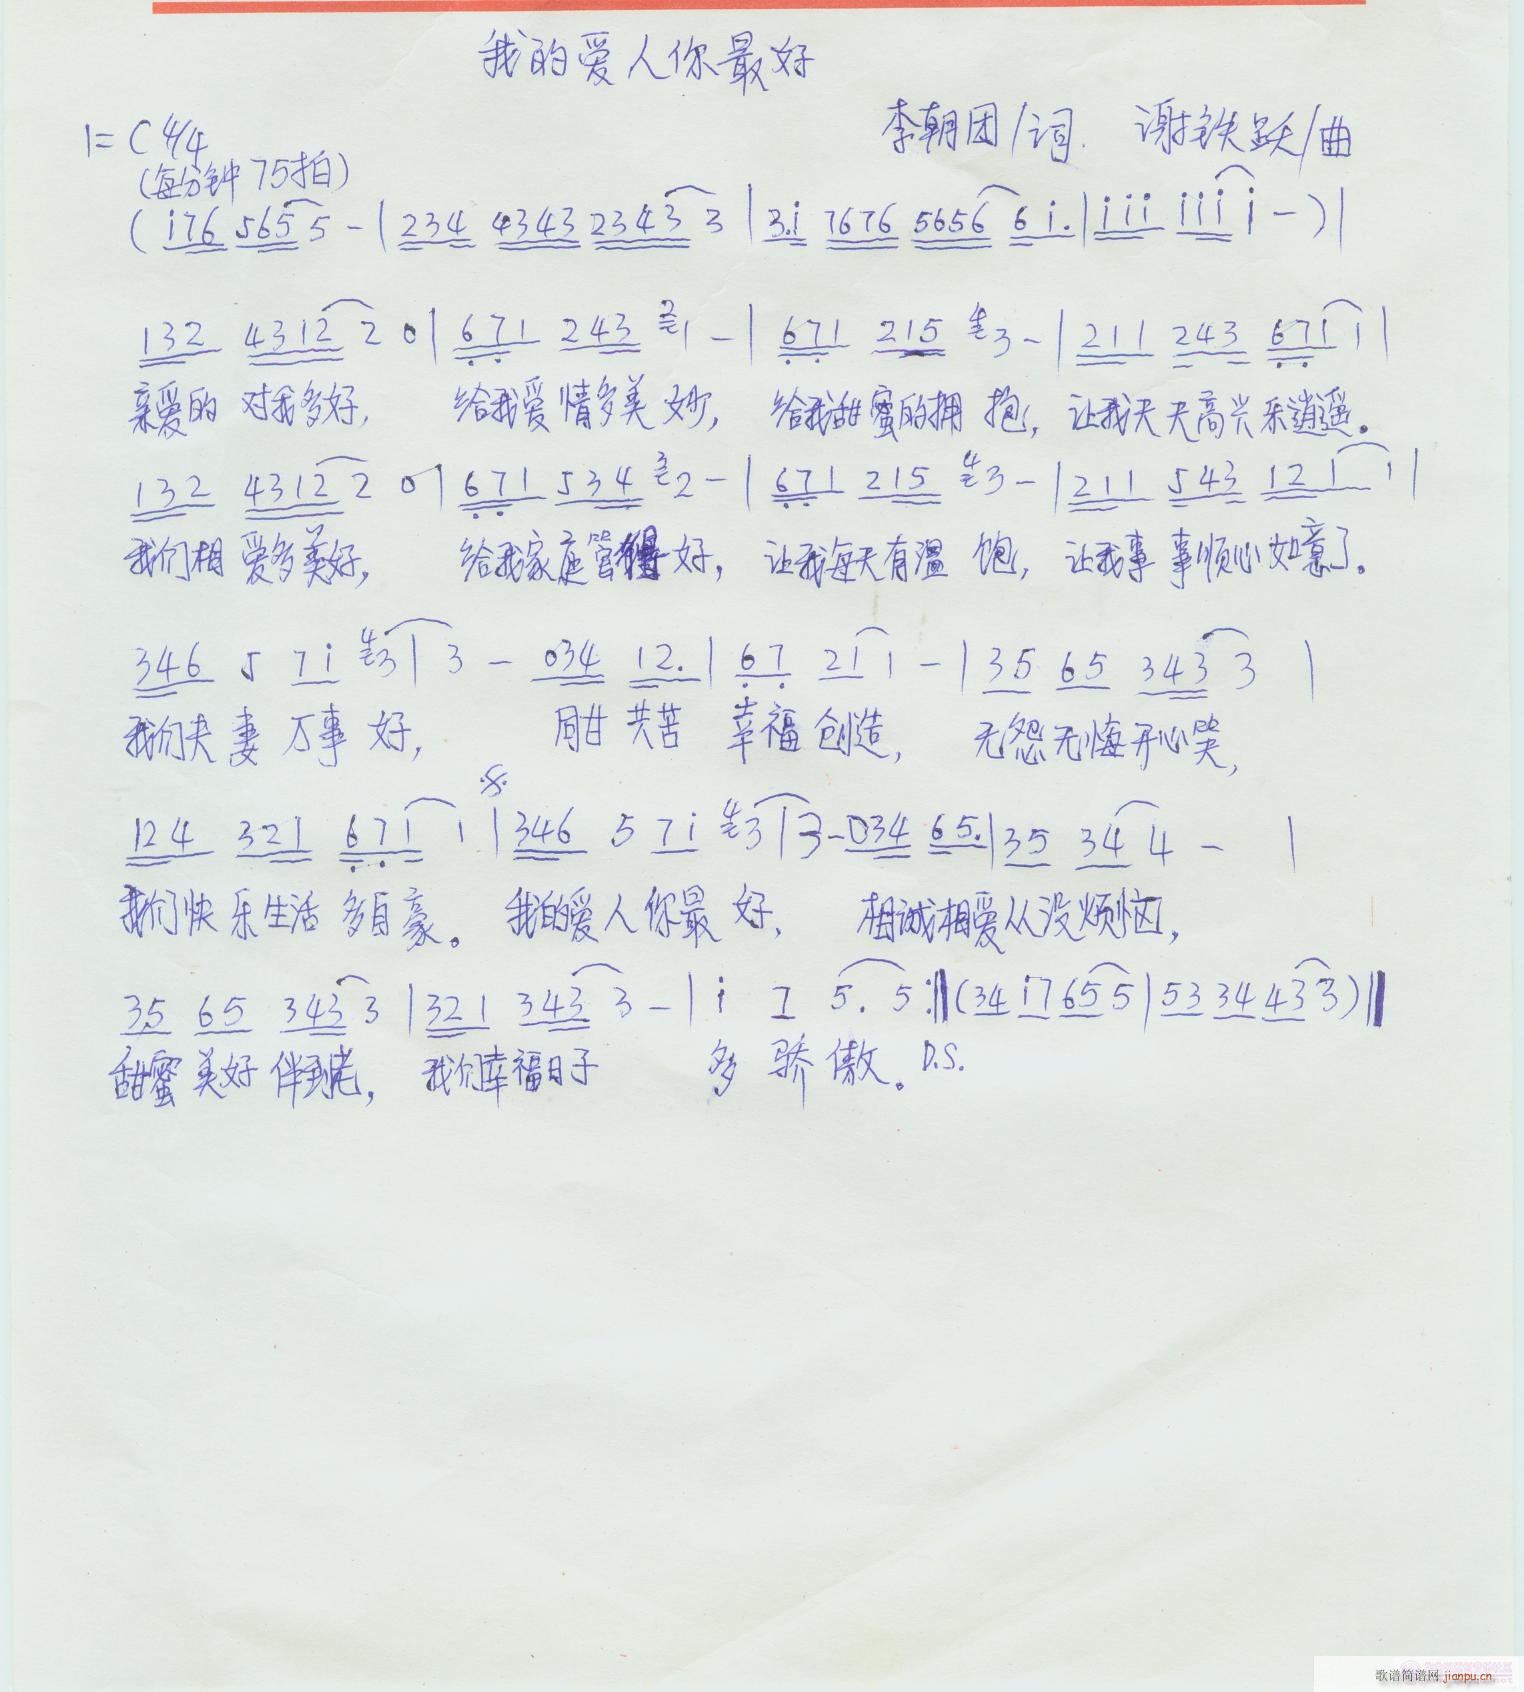 我的爱人你最好
1=C 4/4
李朝团/词. 谢铁跃/曲
(每分钟75拍)
(i76 565 5 - | 234 4343 2343 3 | 3.i 7676 5656 6 i. | iii iii i - ) |
132 4312 2 0 | 671 243 2 1 - | 671 215 4 3 - | 211 243 671 1 |
亲爱的 对我多好, 给我爱情多美妙, 给我甜蜜的拥抱, 让我天天高兴乐逍遥。
132 4312 2 0 | 671 534 3 2 - | 671 215 4 3 - | 211 543 121 1 |
我们相爱多美好, 给我家庭管得好, 让我每天有温饱, 让我事事顺心如意了。
346 5 7i 4 3 | 3 - 034 12. | 67 21 1 - | 35 65 343 3 |
我们夫妻万事好, 同甘共苦 幸福创造, 无怨无悔开心笑,
124 321 671 1 | 346 5 7i 4 3 | 3 - 034 65. | 35 34 4 - |
我们快乐生活多自豪。 我的爱人你最好, 相诚相爱从没烦恼,
35 65 343 3 | 321 343 3 - | i 7 5. 5 :‖ (34 i7 65 5 | 53 34 43 3) ‖
甜蜜美好伴到老, 我们幸福日子 多骄傲。 D.S.
歌谱简谱网 jianpu.cn